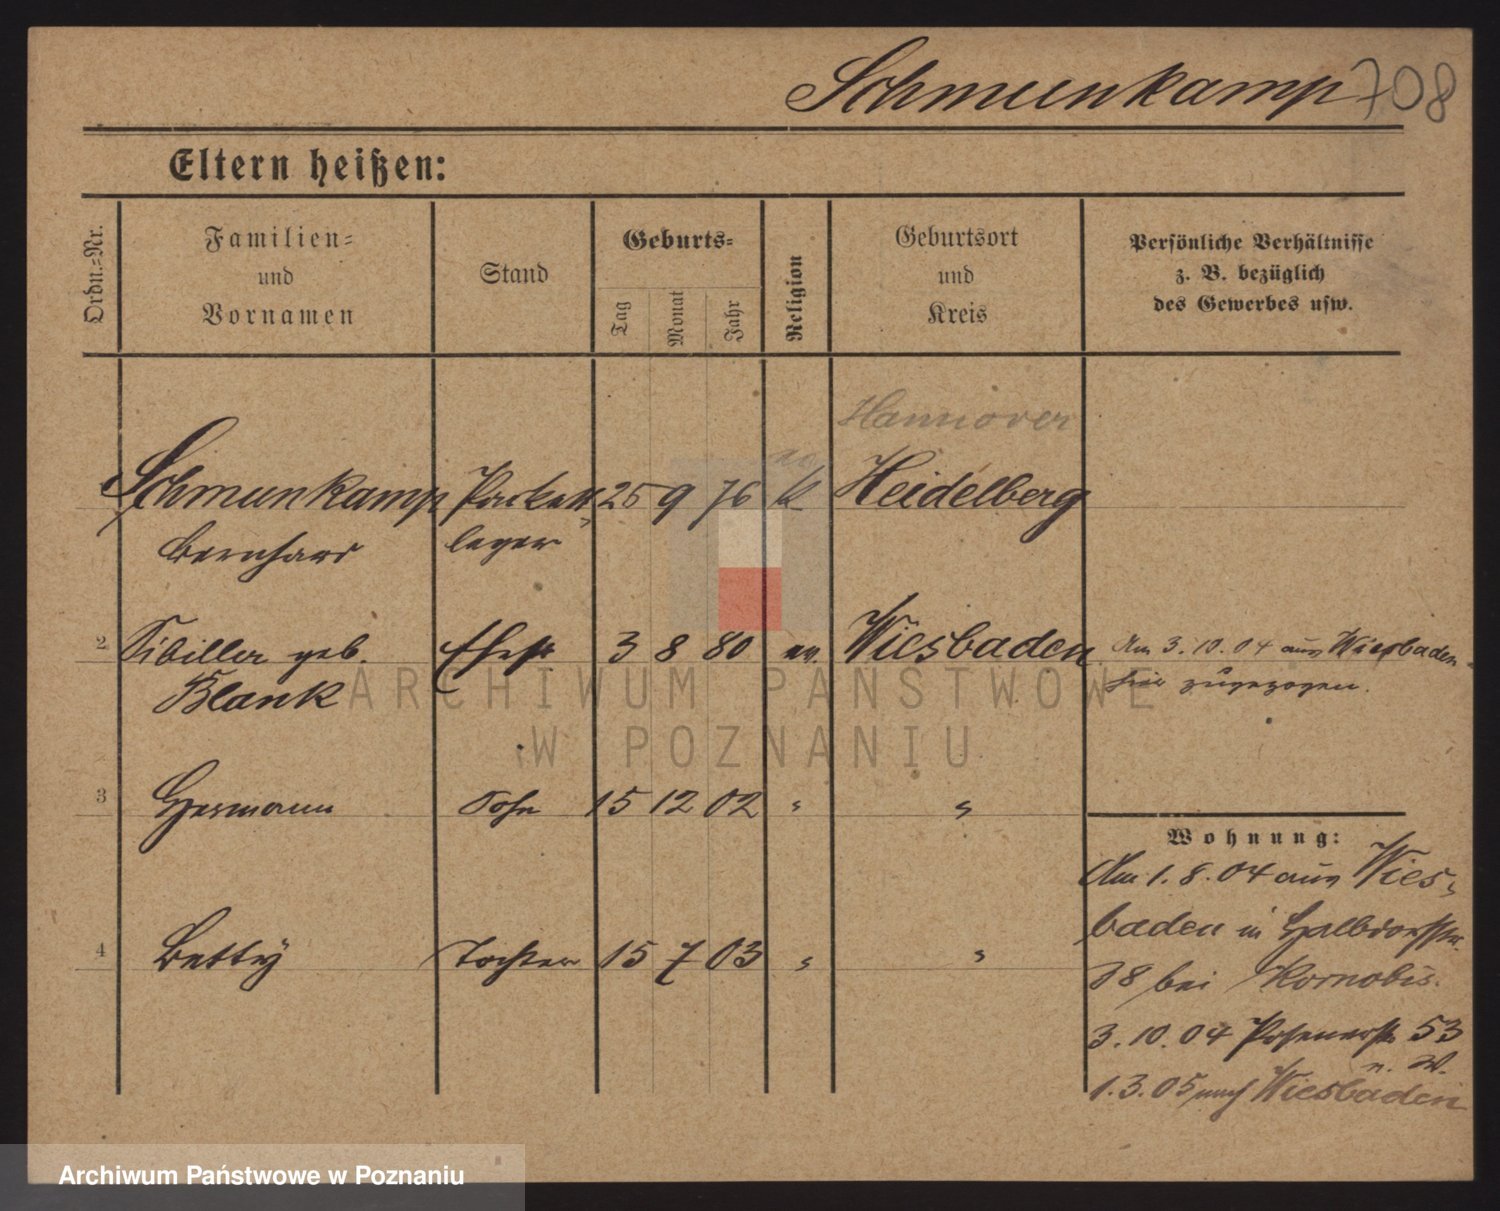 Schmeenkamp 708
Eltern heißen:
Ordn.-Nr.
Familien-
und
Vornamen
Stand
Geburts-
Tag
Monat
Jahr
Religion
Geburtsort
und
Kreis
Persönliche Verhältnisse
z. B. bezüglich
des Gewerbes usw.
Hannover
Schmeenkamp Parkett 25 9 76 k Heidelberg
Bernhard leger
2 Sibiller geb. Ehefr 3 8 80 ev. Wiesbaden Am 3.10.04 aus Wiesbaden
Blank hier zugezogen.
3 Hermann Sohn 15 12 02 " "
4 Betty Tochter 15 7 03 " "
Wohnung:
Am 1.8.04 aus Wies-
baden in Halbdorfstr.
18 bei Kornobis.
3.10.04 Posenerstr 53
n. W.
1.3.05 nach Wiesbaden
ARCHIWUM PAŃSTWOWE
W POZNANIU
Archiwum Państwowe w Poznaniu